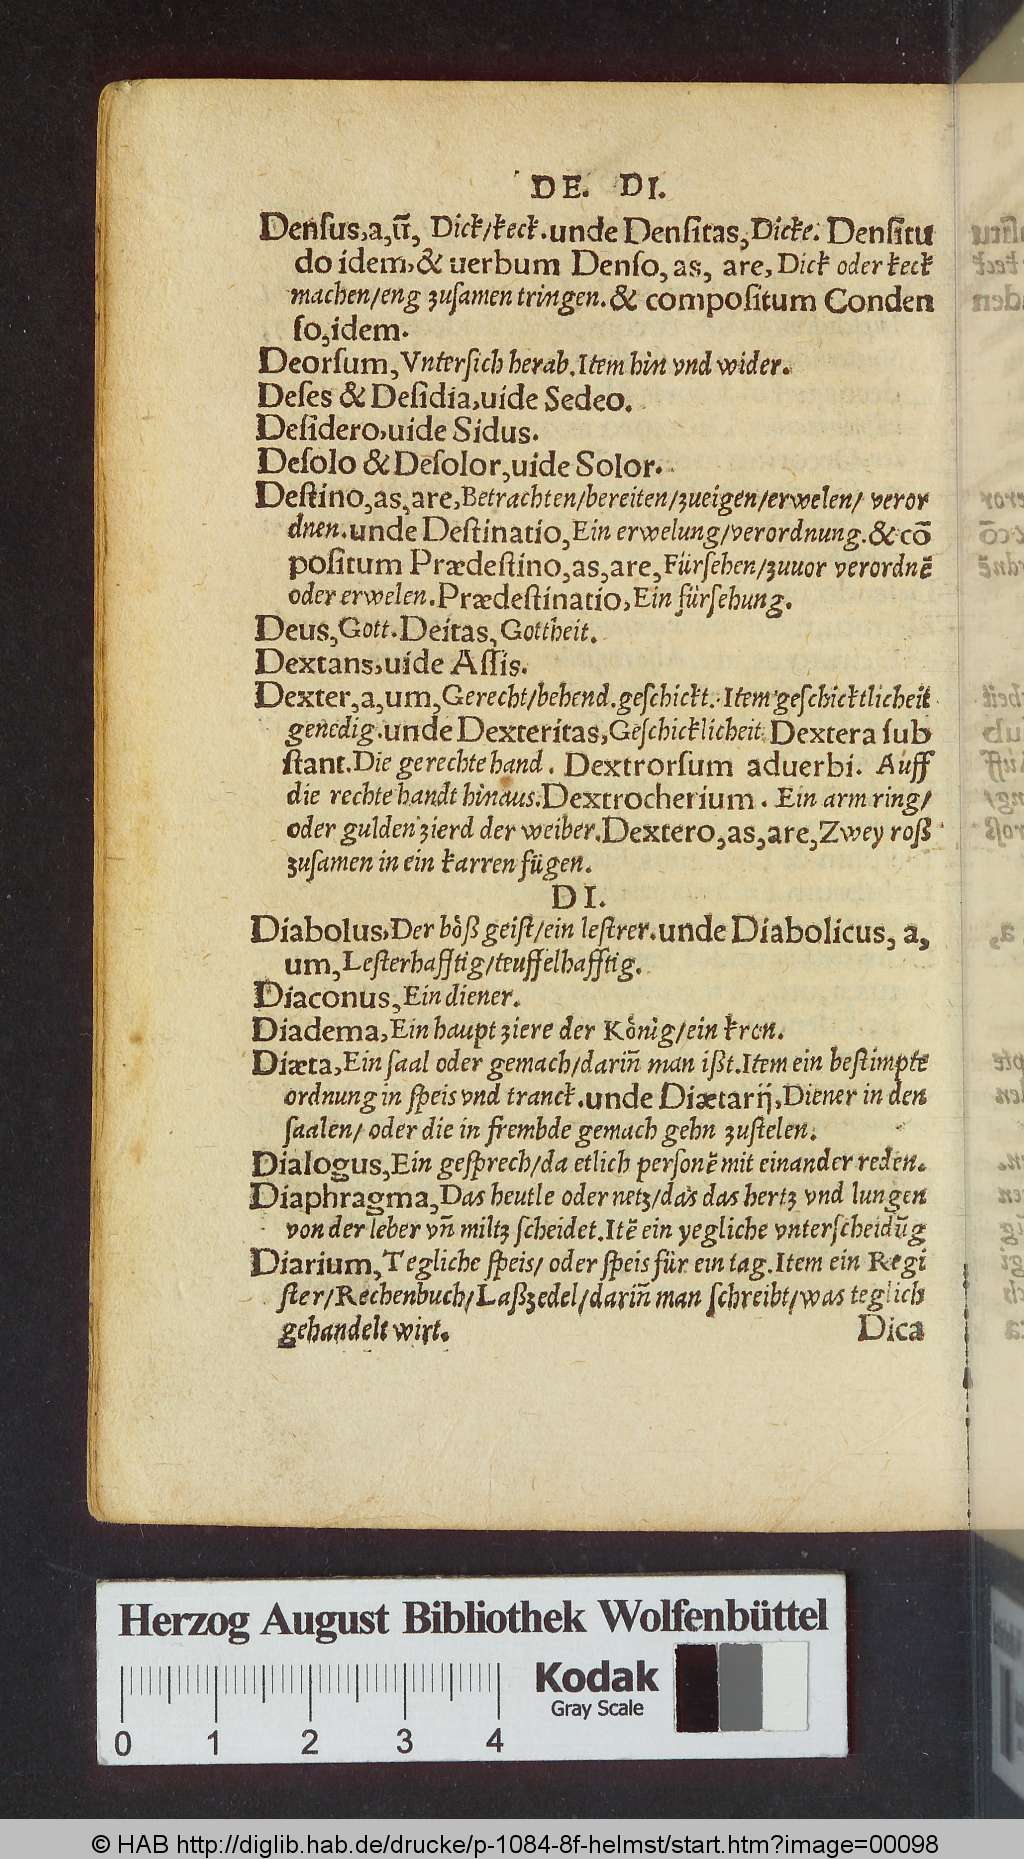 DE. DI.
Denſus,a,ū, Dick/keck.unde Denſitas,Dicke. Denſitu
do idem,& uerbum Denſo, as, are, Dick oder keck
machen/eng zuſamen tringen.& compoſitum Conden
ſo,idem.
Deorſum, Vnterſich herab.Item hin vnd wider.
Deſes & Deſidia,uide Sedeo.
Deſidero,uide Sidus.
Deſolo & Deſolor,uide Solor.
Deſtino,as,are,Betrachten/bereiten/zueigen/erwelen/ veror
dnen.unde Deſtinatio,Ein erwelung/verordnung.& cō
poſitum Prædeſtino,as,are,Fürſehen/zuuor verordnē
oder erwelen.Prædeſtinatio,Ein fürſehung.
Deus,Gott.Deitas,Gottheit.
Dextans,uide Aſſis.
Dexter,a,um,Gerecht/behend.geſchickt.Item geſchicktlicheit
genedig.unde Dexteritas,Geſchicklicheit.Dextera ſub
ſtant.Die gerechte hand. Dextrorſum aduerbi. Auff
die rechte handt hinaus.Dextrocherium. Ein arm ring/
oder gulden zierd der weiber.Dextero,as,are,Zwey roß
zuſamen in ein karren fügen.
DI.
Diabolus,Der bȯß geiſt/ein leſtrer.unde Diabolicus, a,
um,Leſterhafftig/teuffelhafftig.
Diaconus,Ein diener.
Diadema,Ein haupt ziere der Kȯnig/ein kron.
Diæta,Ein ſaal oder gemach/dariñ man ißt.Item ein beſtimpte
ordnung in ſpeis vnd tranck.unde Diætarij,Diener in den
ſaalen/ oder die in frembde gemach gehn zuſtelen.
Dialogus,Ein geſprech/da etlich perſonē mit einander reden.
Diaphragma,Das heutle oder netz/das das hertz vnd lungen
von der leber vñ miltz ſcheidet.Itē ein yegliche vnterſcheidūg
Diarium,Tegliche ſpeis/ oder ſpeis für ein tag.Item ein Regi
ſter/Rechenbuch/Laßzedel/dariñ man ſchreibt/was teglich
gehandelt wirt.
Dica
Herzog August Bibliothek Wolfenbüttel
Kodak
Gray Scale
0 1 2 3 4
© HAB http://diglib.hab.de/drucke/p-1084-8f-helmst/start.htm?image=00098